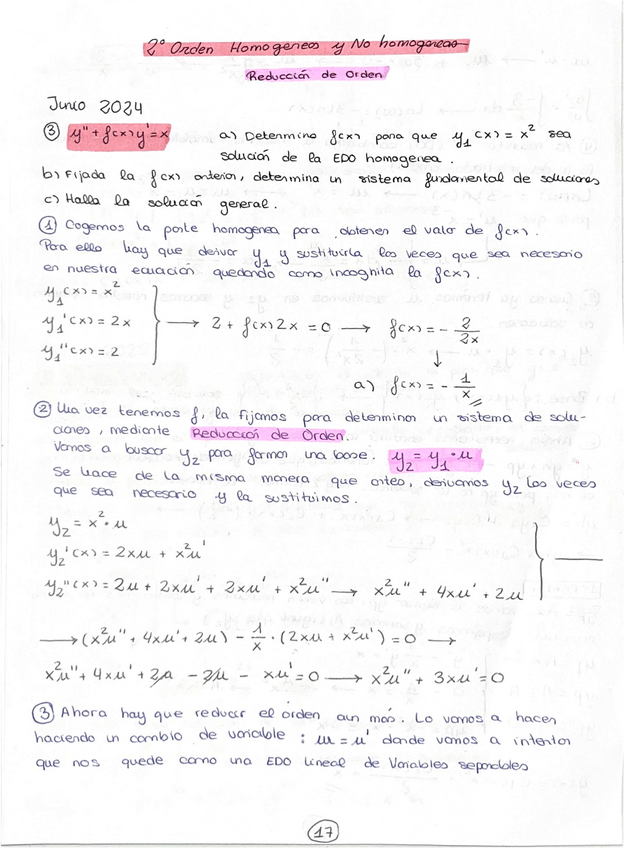 2º Orden Homogeneos y No homogeneas
Reducción de Orden
Junio 2024
③ y'' + f(x) y' = x a) Determina f(x) para que y₁(x) = x² sea
solución de la EDO homogenea.
b) Fijada la f(x) anterior, determina un sistema fundamental de soluciones
c) Halla la solución general.
① Cogemos la parte homogenea para obtener el valor de f(x).
Para ello hay que derivar y₁ y sustituirla las veces que sea necesario
en nuestra ecuación quedando como incognita la f(x).
y₁(x) = x²
y₁'(x) = 2x → 2 + f(x) 2x = 0 → f(x) = - 2/2x
y₁''(x) = 2 ↓
a) f(x) = - 1/x
② Una vez tenemos f, la fijamos para determinar un sistema de solu-
ciones, mediante Reducción de Orden.
Vamos a buscar y₂ para formar una base. y₂ = y₁ · u
Se hace de la misma manera que antes, derivamos y₂ las veces
que sea necesario y la sustituimos.
y₂ = x² · u
y₂'(x) = 2xu + x²u'
y₂''(x) = 2u + 2xu' + 2xu' + x²u'' → x²u'' + 4xu' + 2u
→ (x²u'' + 4xu' + 2u) - 1/x · (2xu + x²u') = 0 →
x²u'' + 4xu' + 2u - 2u - xu' = 0 → x²u'' + 3xu' = 0
③ Ahora hay que reducir el orden aun más. Lo vamos a hacer
haciendo un cambio de variable : w = u' donde vamos a intentar
que nos quede como una EDO Lineal de Variables separables
17